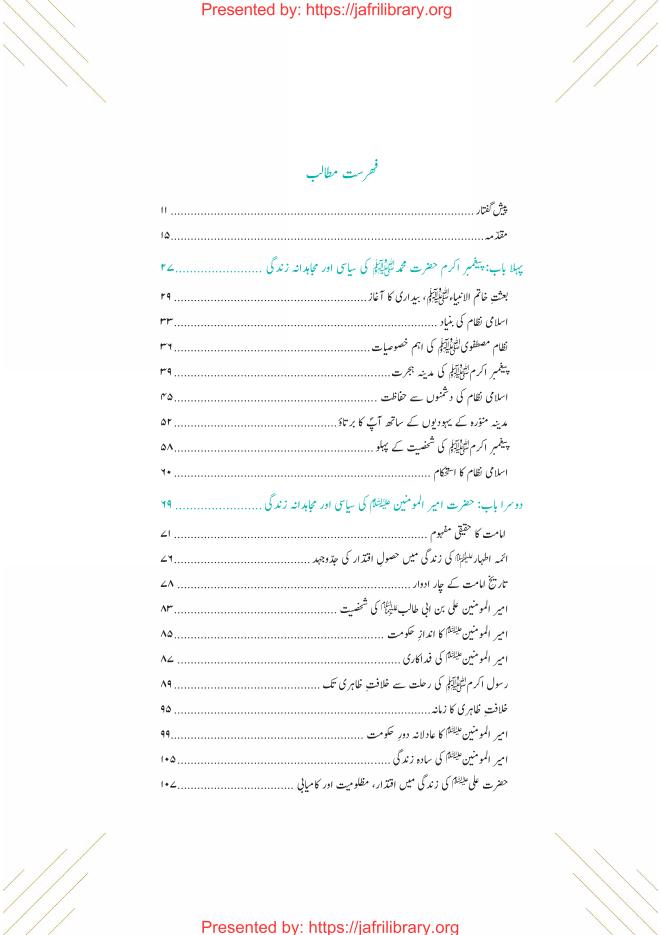 Presented by: https://jafrilibrary.org
فهرست مطالب
پیش گفتار ........ ۱۱
مقدّمہ ........ ۱۵
پہلا باب: پیغمبر اکرم حضرت محمد ﷺ کی سیاسی اور مجاہدانہ زندگی ........ ۲۷
بعثتِ خاتم الانبیاء ﷺ، بیداری کا آغاز ........ ۲۹
اسلامی نظام کی بنیاد ........ ۳۳
نظام مصطفوی ﷺ کی اہم خصوصیات ........ ۳۶
پیغمبر اکرم ﷺ کی مدینہ ہجرت ........ ۳۹
اسلامی نظام کی دشمنوں سے حفاظت ........ ۴۵
مدینہ منوّرہ کے یہودیوں کے ساتھ آپؐ کا برتاؤ ........ ۵۲
پیغمبر اکرم ﷺ کی شخصیت کے پہلو ........ ۵۸
اسلامی نظام کا استحکام ........ ۶۰
دوسرا باب: حضرت امیر المومنین علیہ السلام کی سیاسی اور مجاہدانہ زندگی ........ ۶۹
امامت کا حقیقی مفہوم ........ ۷۱
ائمہ اطہار علیہم السلام کی زندگی میں حصولِ اقتدار کی جدّوجہد ........ ۷۶
تاریخِ امامت کے چار ادوار ........ ۷۸
امیر المومنین علی بن ابی طالب علیہ السلام کی شخصیت ........ ۸۳
امیر المومنین علیہ السلام کا اندازِ حکومت ........ ۸۵
امیر المومنین علیہ السلام کی فداکاری ........ ۸۷
رسول اکرم ﷺ کی رحلت سے خلافتِ ظاہری تک ........ ۸۹
خلافتِ ظاہری کا زمانہ ........ ۹۵
امیر المومنین علیہ السلام کا عادلانہ دورِ حکومت ........ ۹۹
امیر المومنین علیہ السلام کی سادہ زندگی ........ ۱۰۵
حضرت علی علیہ السلام کی زندگی میں اقتدار، مظلومیت اور کامیابی ........ ۱۰۷
Presented by: https://jafrilibrary.org